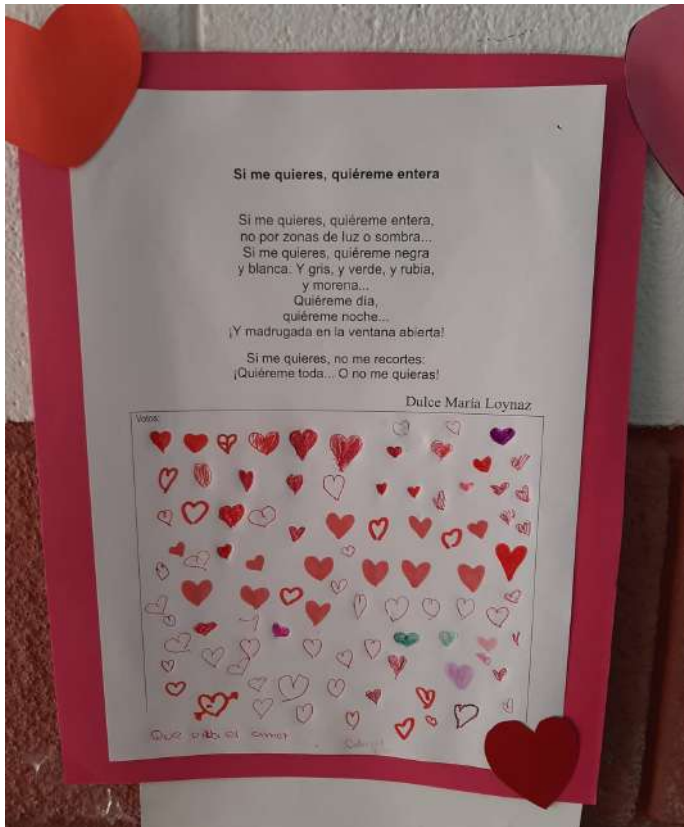 Si me quieres, quiéreme entera
Si me quieres, quiéreme entera,
no por zonas de luz o sombra...
Si me quieres, quiéreme negra
y blanca. Y gris, y verde, y rubia,
y morena...
Quiéreme día,
quiéreme noche...
¡Y madrugada en la ventana abierta!
Si me quieres, no me recortes:
¡Quiéreme toda... O no me quieras!
Dulce María Loynaz
Votos:
Que el amor